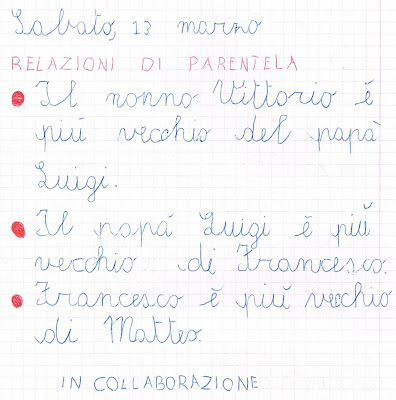 Sabato, 13 marzo
RELAZIONI DI PARENTELA
Il nonno Vittorio è
più vecchio del papà
Luigi.
Il papà Luigi è più
vecchio di Francesco.
Francesco è più vecchio
di Matteo.
IN COLLABORAZIONE